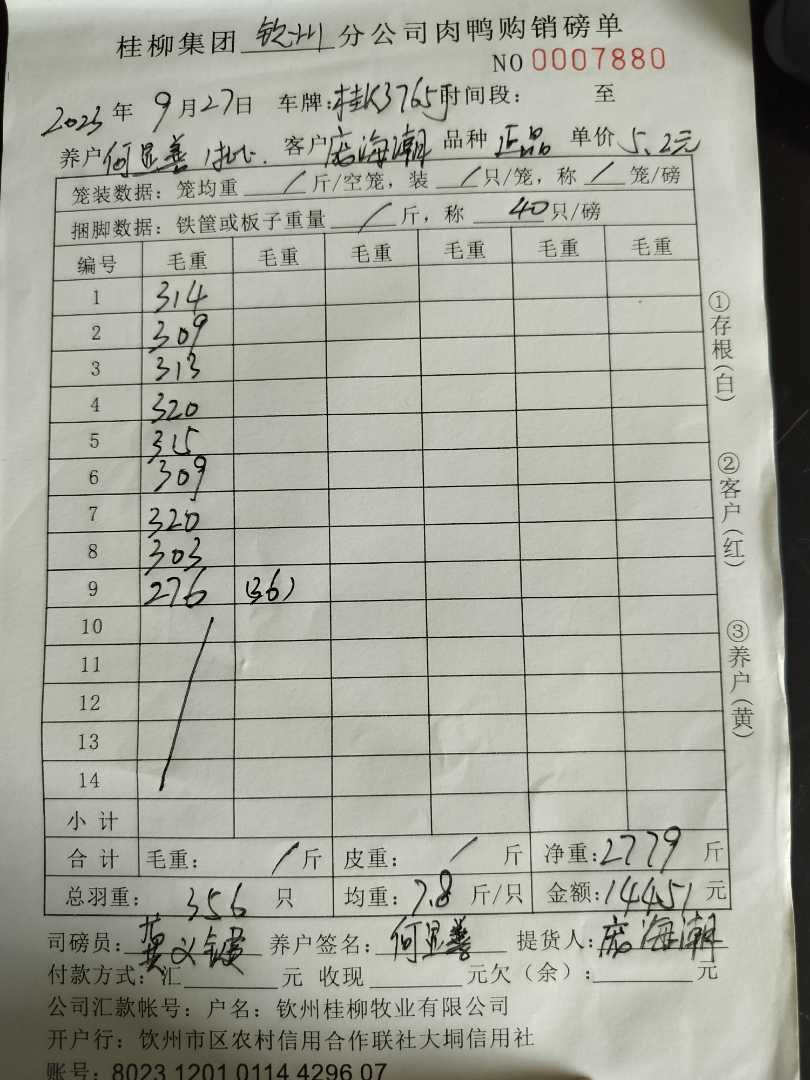 桂柳集团 钦州 分公司肉鸭购销磅单
NO 0007880
2023 年 9 月 27 日 车牌: 桂K3765 时间段: 至
养户 何显善 1批. 客户 庞海潮 品种 正品 单价 5.2元
笼装数据: 笼均重 / 斤/空笼, 装 / 只/笼, 称 / 笼/磅
捆脚数据: 铁筐或板子重量 / 斤, 称 40 只/磅
编号 毛重 毛重 毛重 毛重 毛重 毛重
1 314
2 309
3 313
4 320
5 315
6 309
7 320
8 303
9 276 (36)
10
11
12
13
14
小计
合计 毛重: / 斤 皮重: / 斤 净重: 2779 斤
总羽重: 356 只 均重: 7.8 斤/只 金额: 14451 元
司磅员: 养户签名: 何显善 提货人: 庞海潮
付款方式: 汇 元 收现 元欠(余): 元
公司汇款帐号: 户名: 钦州桂柳牧业有限公司
开户行: 钦州市区农村信用合作联社大垌信用社
账号: 8023 1201 0114 4296 07
①存根(白)
②客户(红)
③养户(黄)